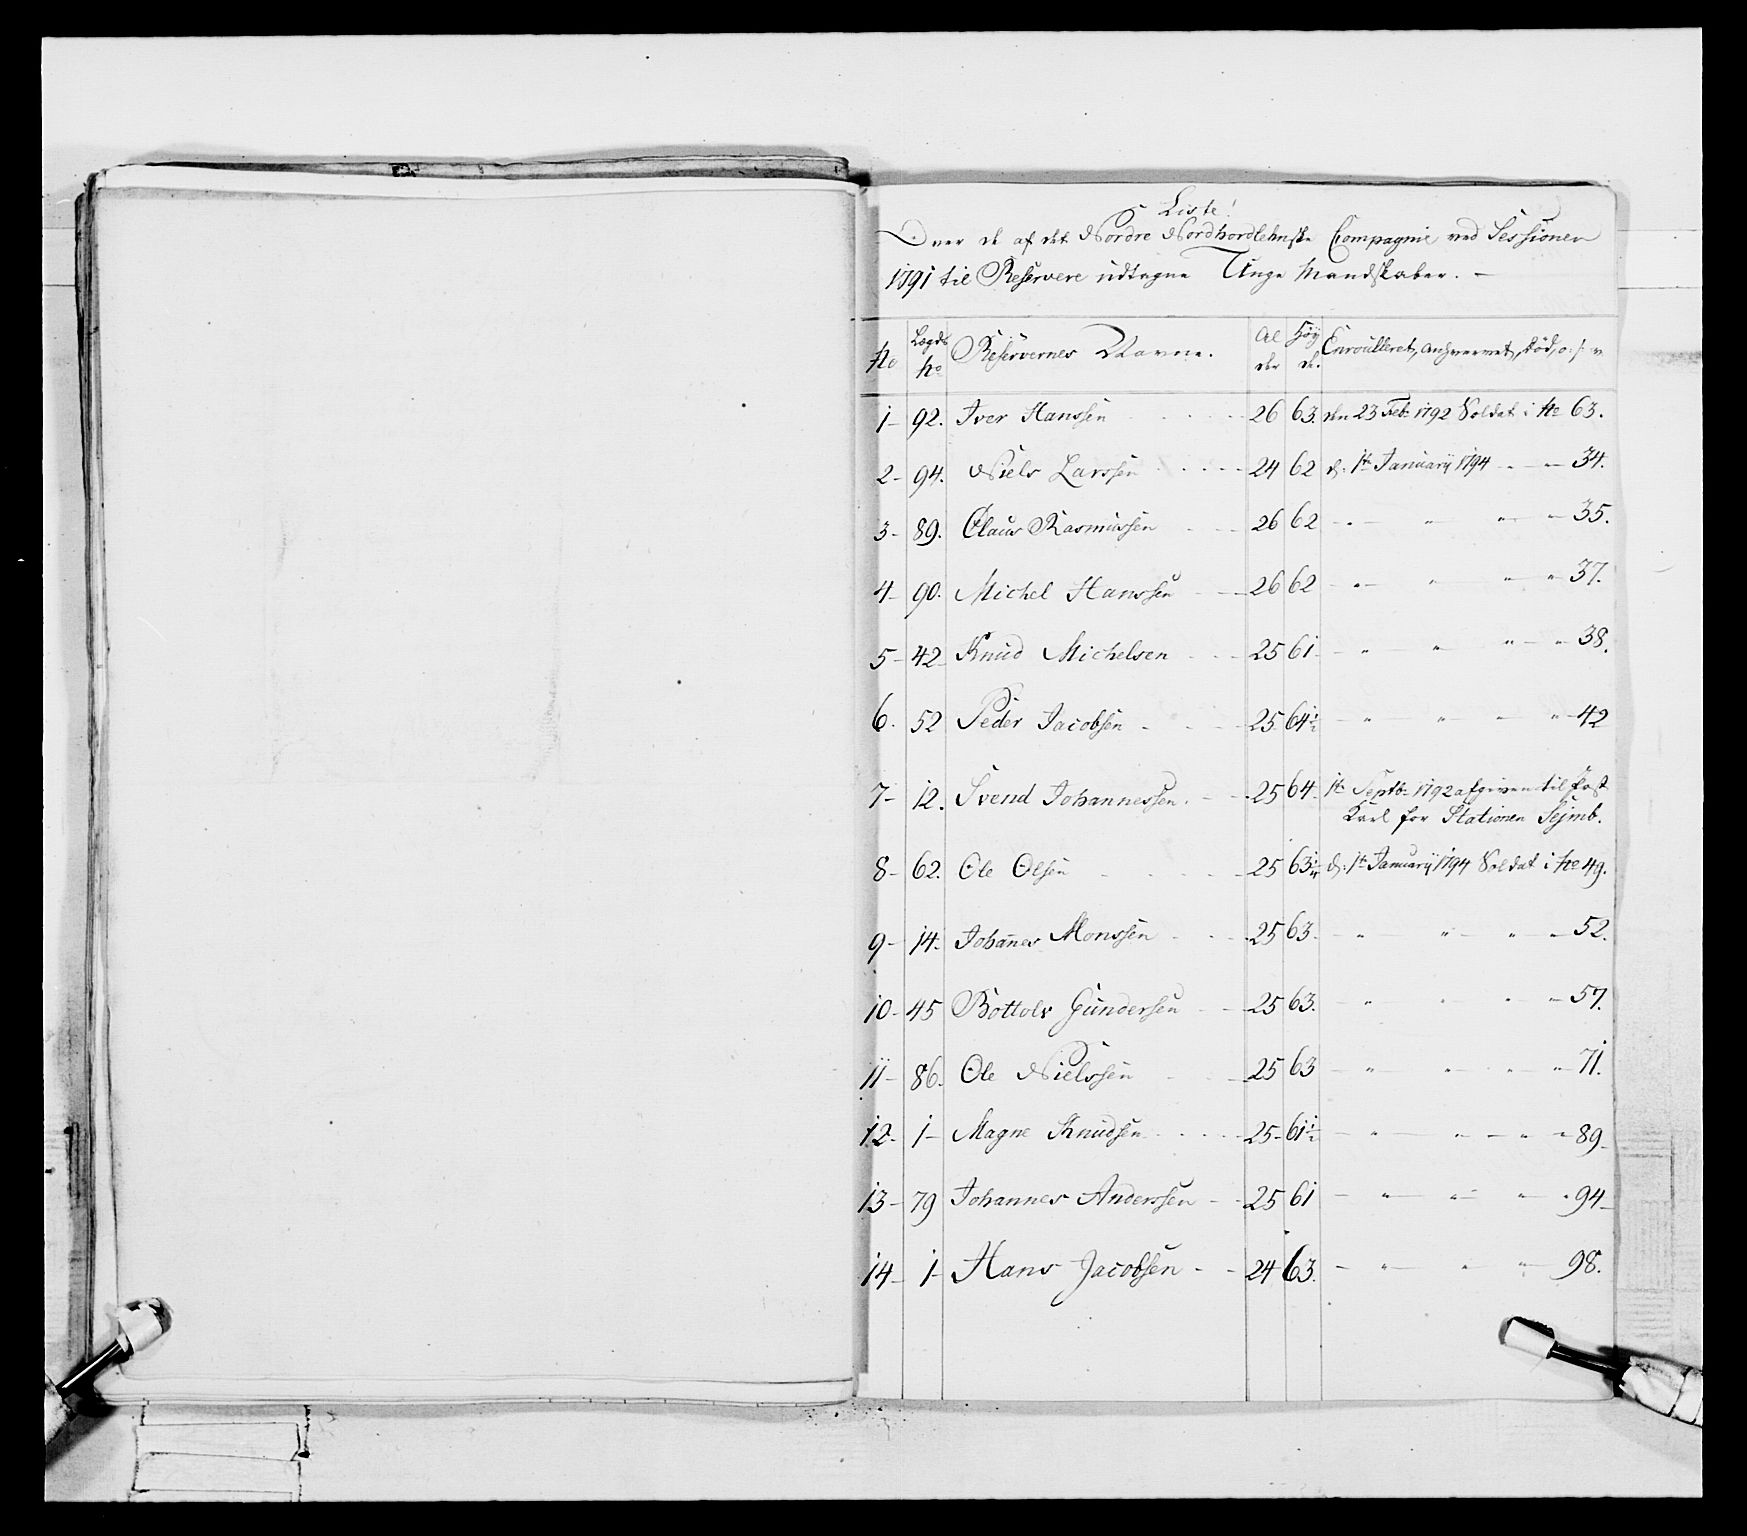 Liste!
Over de af det Nordre Nordhordlehnske Compagnie ved Sessionen
1791 til Reservere udtagne Unge Mandskaber. —
No Lægds No Reservernes Navne. Alder Høyde. Enroulleret, anhvervet, død, o: s: v
1- 92. Iver Hanssen 26 63. den 23 Feb: 1792 Soldat i No 63.
2- 94. Niels Larssen 24 62 d: 1te Januarij 1794 " 34.
3- 89. Claus Rasmussen 26 62 - " - " " 35.
4- 90. Michel Hanssen 26 62 - " - " " " 37.
5- 42 Knud Michelsen 25 61 - " " " " 38.
6. 52 Peder Jacobsen 25 64½ - " " - " 42
7- 12. Svend Johannessen. 25 64. 1te Septb: 1792 afgiven til fast
Karl for Stationen Sejmb.
8- 62. Ole Olsen 25 63¼ d: 1te Januarij 1794 Soldat i No 49.
9- 14. Johannes Monssen 25 63. - " " " " 52.
10- 45 Bottolv Gundersen 25 63. - " " " " 57.
11- 86. Ole Nielssen 25 63 - " " " " 71.
12- 1- Magne Knudsen 25 61½ - " " " " 89
13- 79 Johannes Anderssen 25 61 - " " " " 94
14- 1- Hans Jacobsen 24 63. - " " " 98.